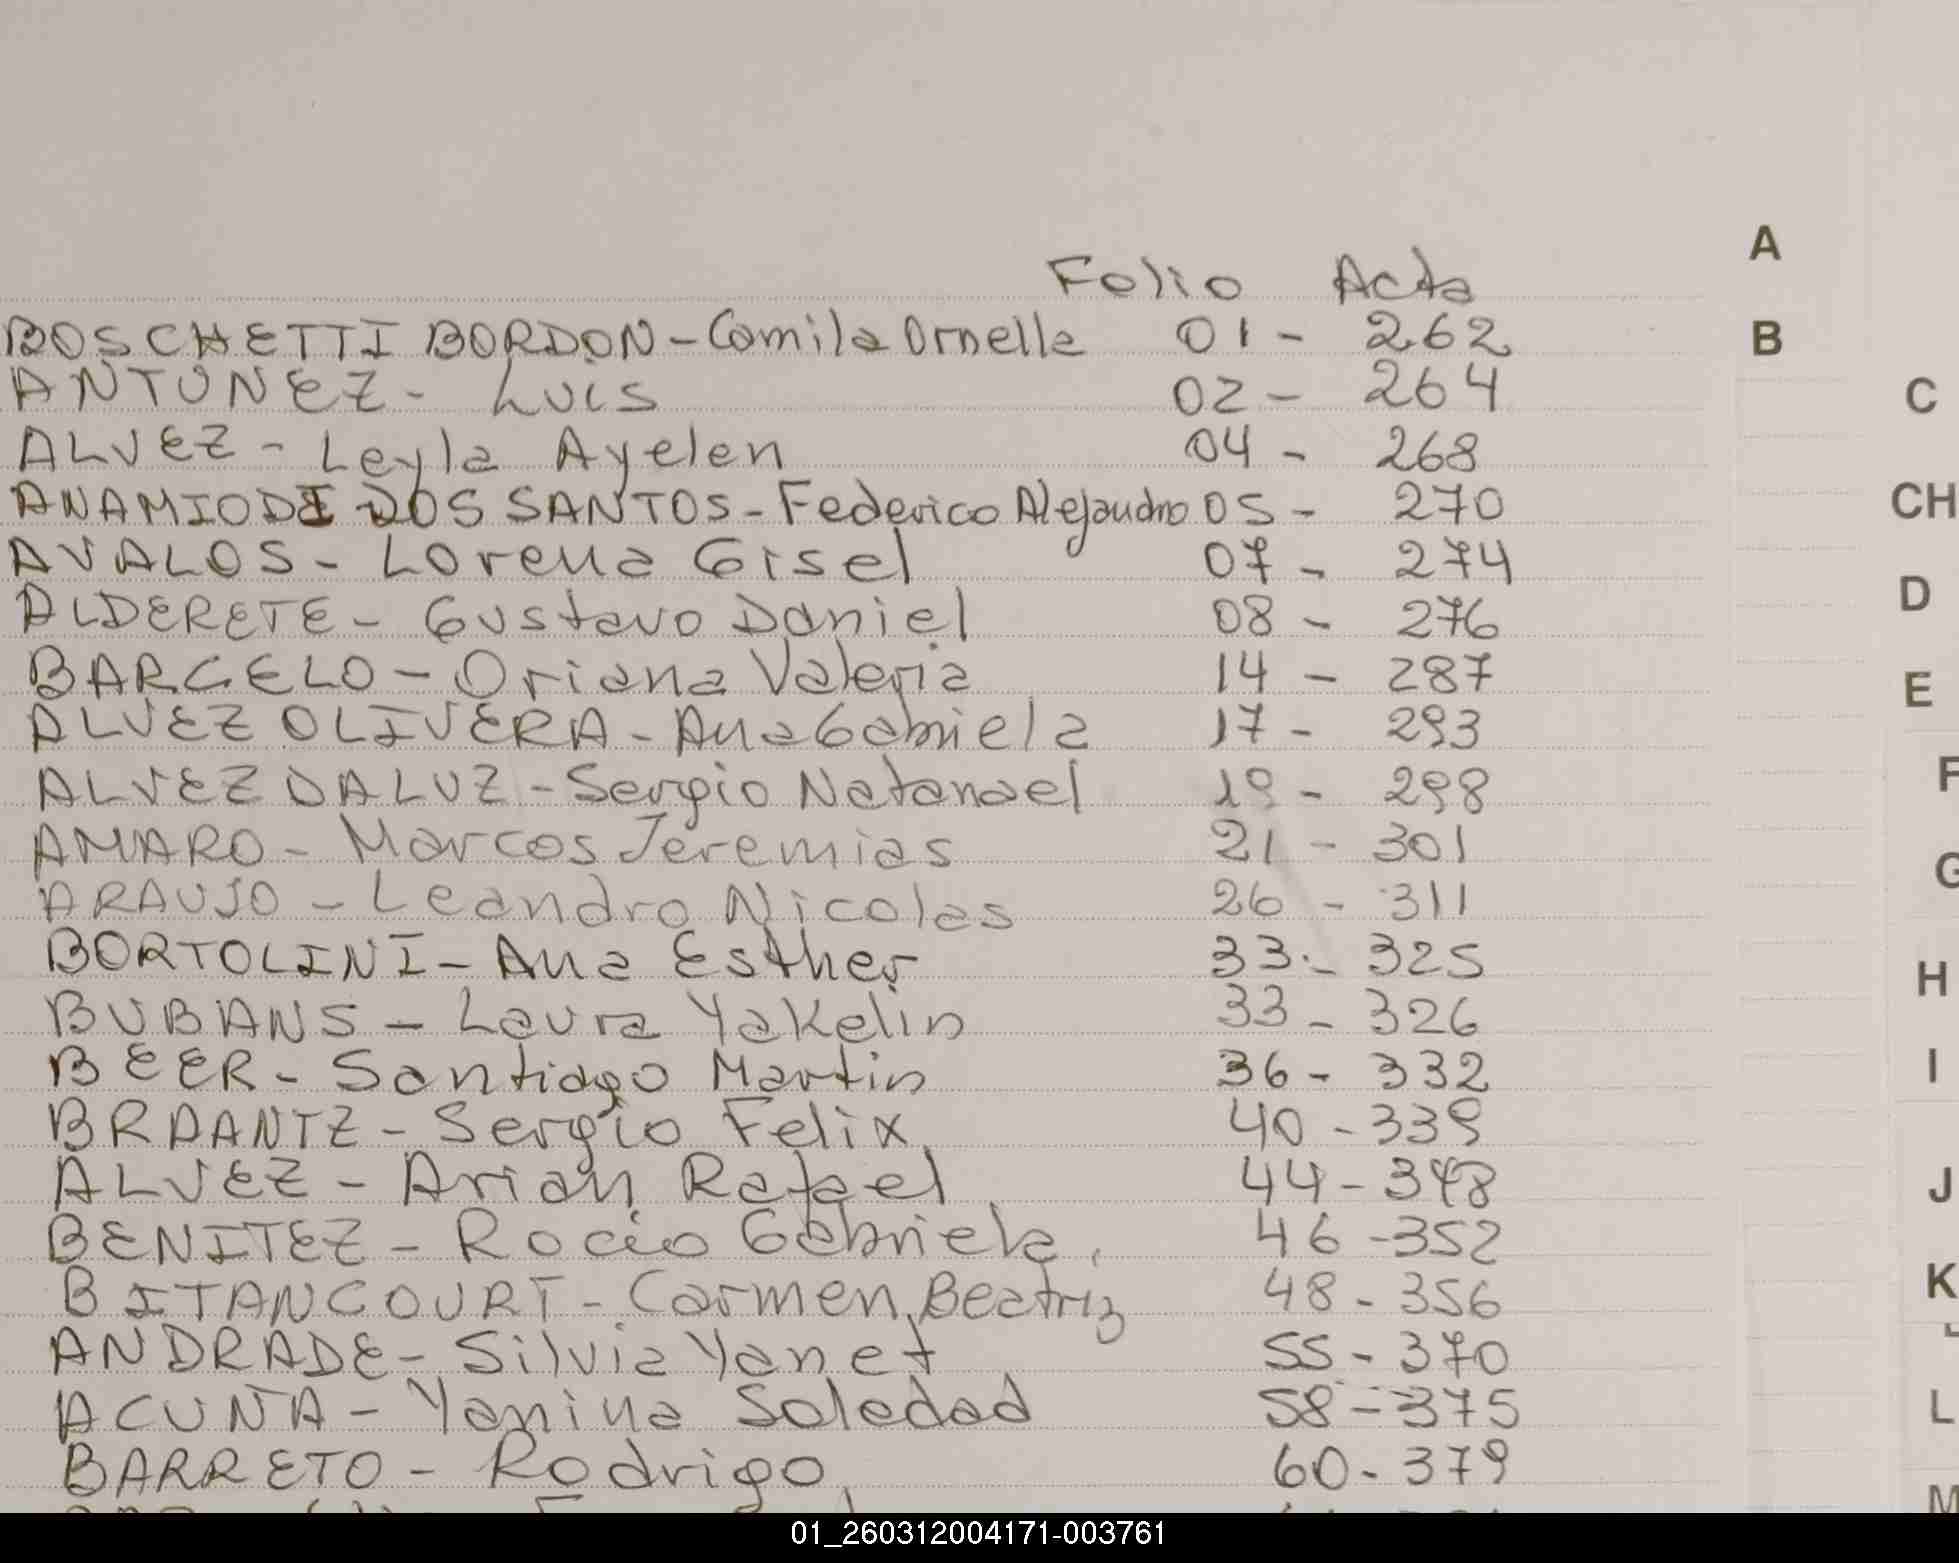 Folio Acta
BOSCHETTI BORDON - Camila Ornella 01 - 262
ANTUNEZ - Luis 02 - 264
ALVEZ - Leyla Ayelen 04 - 268
ANAMIODE DOS SANTOS - Federico Alejandro 05 - 270
AVALOS - Lorena Gisel 07 - 274
ALDERETE - Gustavo Daniel 08 - 276
BARGELO - Oriana Valeria 14 - 287
ALVEZ OLIVERA - Ana Gabriela 17 - 293
ALVEZ DALUZ - Sergio Natanael 19 - 298
AMARO - Marcos Jeremias 21 - 301
ARAUJO - Leandro Nicolas 26 - 311
BORTOLINI - Ana Esther 33 - 325
BUBANS - Laura Yakelin 33 - 326
BEER - Santiago Martin 36 - 332
BRAANTZ - Sergio Felix 40 - 339
ALVEZ - Arian Rafael 44 - 348
BENITEZ - Rocio Gabriela. 46 - 352
BITANCOURT - Carmen Beatriz 48 - 356
ANDRADE - Silvia Yanet 55 - 370
ACUÑA - Yanina Soledad 58 - 375
BARRETO - Rodrigo 60 - 379
A
B
C
CH
D
E
F
G
H
I
J
K
L
M
01_260312004171-003761